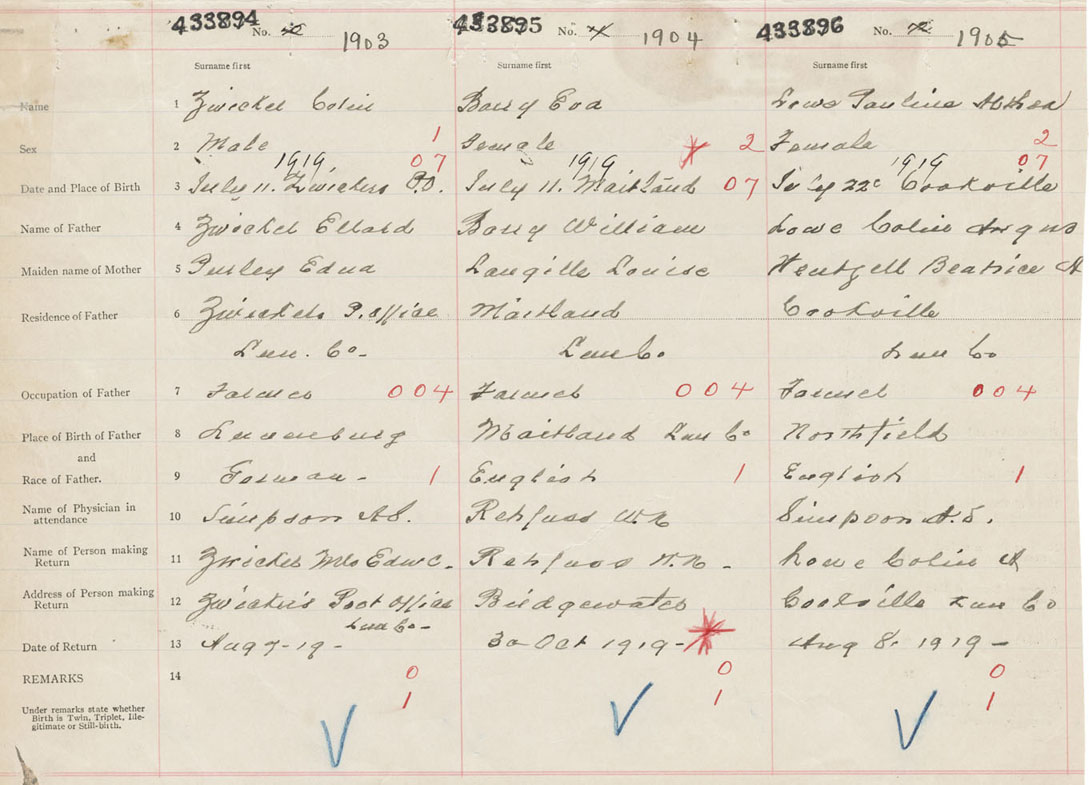 433894 No. 1903 433895 No. 1904 433896 No. 1905
Surname first Surname first Surname first
Name 1 Zwicker Colin Barry Eva Lowe Pauline
Sex 2 Male 1 Female 2 Female 2
1919 07 1919 1919 07
Date and Place of Birth 3 July 11. Zwickers P.O. July 11. Maitland 07 July 22 Cookville
Name of Father 4 Zwicker Ellard Barry William Lowe Colin Angus
Maiden name of Mother 5 Edna Langille Louise Wentzell Beatrice A
Residence of Father 6 Zwickers P. office Maitland Cookville
Lun. Co- Lun Co Lun Co
Occupation of Father 7 Farmer 004 Farmer 004 Farmer 004
Place of Birth of Father 8 Lunenburg Maitland Lun Co Northfield
and
Race of Father. 9 German - 1 English 1 English 1
Name of Physician in
attendance 10 Simpson A.S. Rehfuss W.N Simpson A.S.
Name of Person making
Return 11 Zwicker Mrs Edw C. Rehfuss W.N - Lowe Colin A
Address of Person making
Return 12 Zwicker's Post Office Bridgewater Cookville Lun Co
Lun Co-
Date of Return 13 Aug 7-19- 30 Oct 1919- Aug 8. 1919-
REMARKS 14 0 0 0
Under remarks state whether
Birth is Twin, Triplet, Ille-
gitimate or Still-birth.
1 1 1